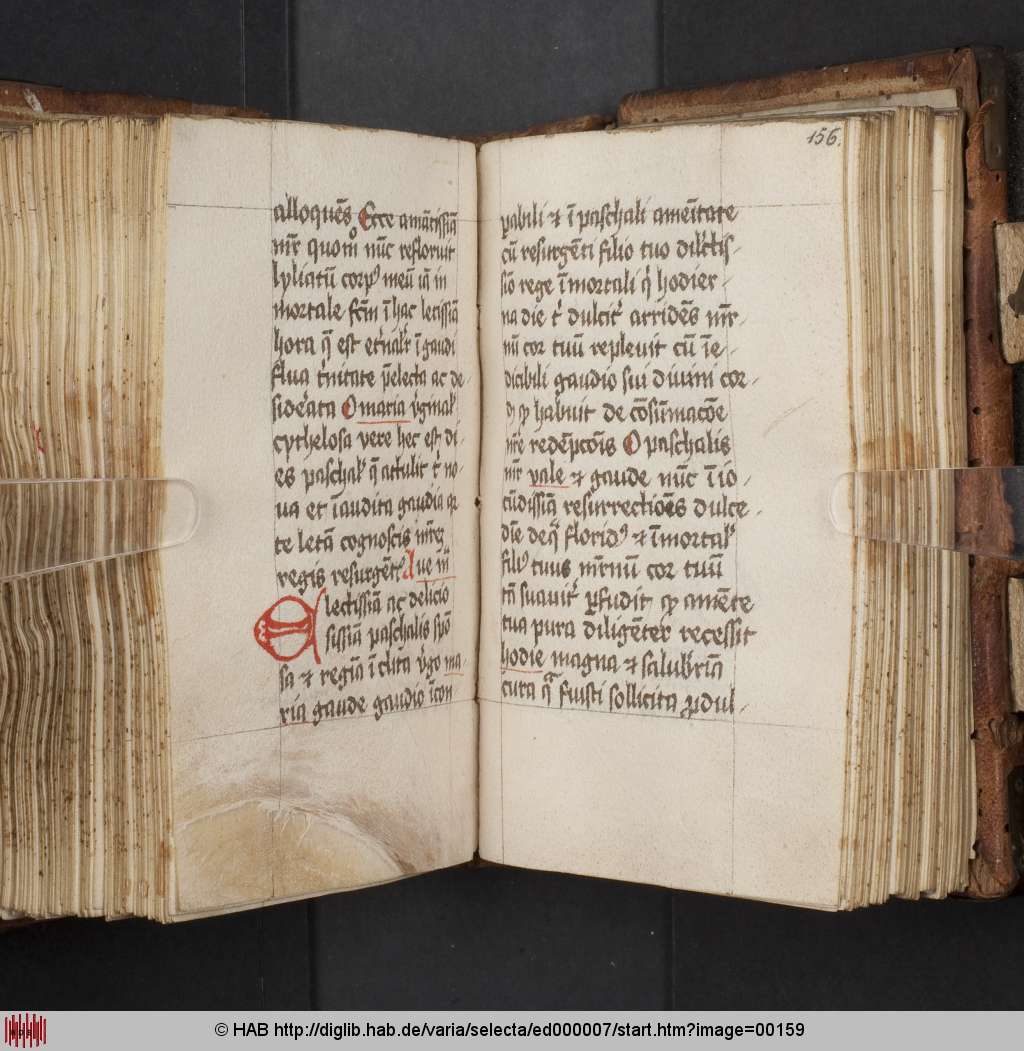 alloquēs Ecce amātissiā
mr̄ quom̊ nūc refloruit
lyliatū corpꝰ meū iā in
mortale fcm̄ ī hac letissiā
hora q̄ est et̓nalit̓ ī gaudi
flua t̓nitate p̄electa ac de-
sid̓ata O maria v̓ginal̓
cythelosa vere hec est di-
es paschal̓ q̄ attulit t̓ no-
ua et īaudita gaudia
te letā cognoscis
regis resurgēt̓ Aue
Electissiā ac delicio
sissiā paschalis spō
sa ⁊ regia īclita v̓go ma-
ria gaude gaudio īcon
156.
pabili ⁊ ī paschali amēitate
cū resurgēti filio tuo dil̓ctis-
sio rege īmortali q̓ hodier-
na die t̓ dulcit̓ arridēs mr̄-
nū cor tuū repleuit cū īe-
dicibili gaudio sui diuini cor-
habuit de cōsūmacōe
nr̄e redēpcōis O paschalis
mr̄ vale ⁊ gaude nūc īio-
cūdissiā resurrectiōis dulce-
dīe deq̄ floridꝰ ⁊ īmortal̓
filiꝰ tuus mr̄nū cor tuū
tā suauit̓ ꝑfudit amēte
tua pura diligēter recessit
hodie magna ⁊ salub̓ria
cura fuisti sollicita ꝓdul-
© HAB http://diglib.hab.de/varia/selecta/ed000007/start.htm?image=00159